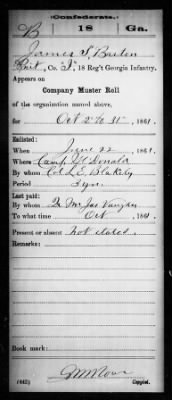 Confederate.
B 18 Ga.
James S.
Pvt, Co. "I", 18 Reg't Georgia Infantry.
Appears on
Company Muster Roll
of the organization named above,
for Oct 2 to 31, 1861.
Enlisted:
When June 22, 1861.
Where Camp McDonald
By whom Col. L. E. Blakely
Period
Last paid:
By whom Jas Vaughn
To what time Oct, 1861.
Present or absent Not stated
Remarks:
Book mark:
(642) Copyist.